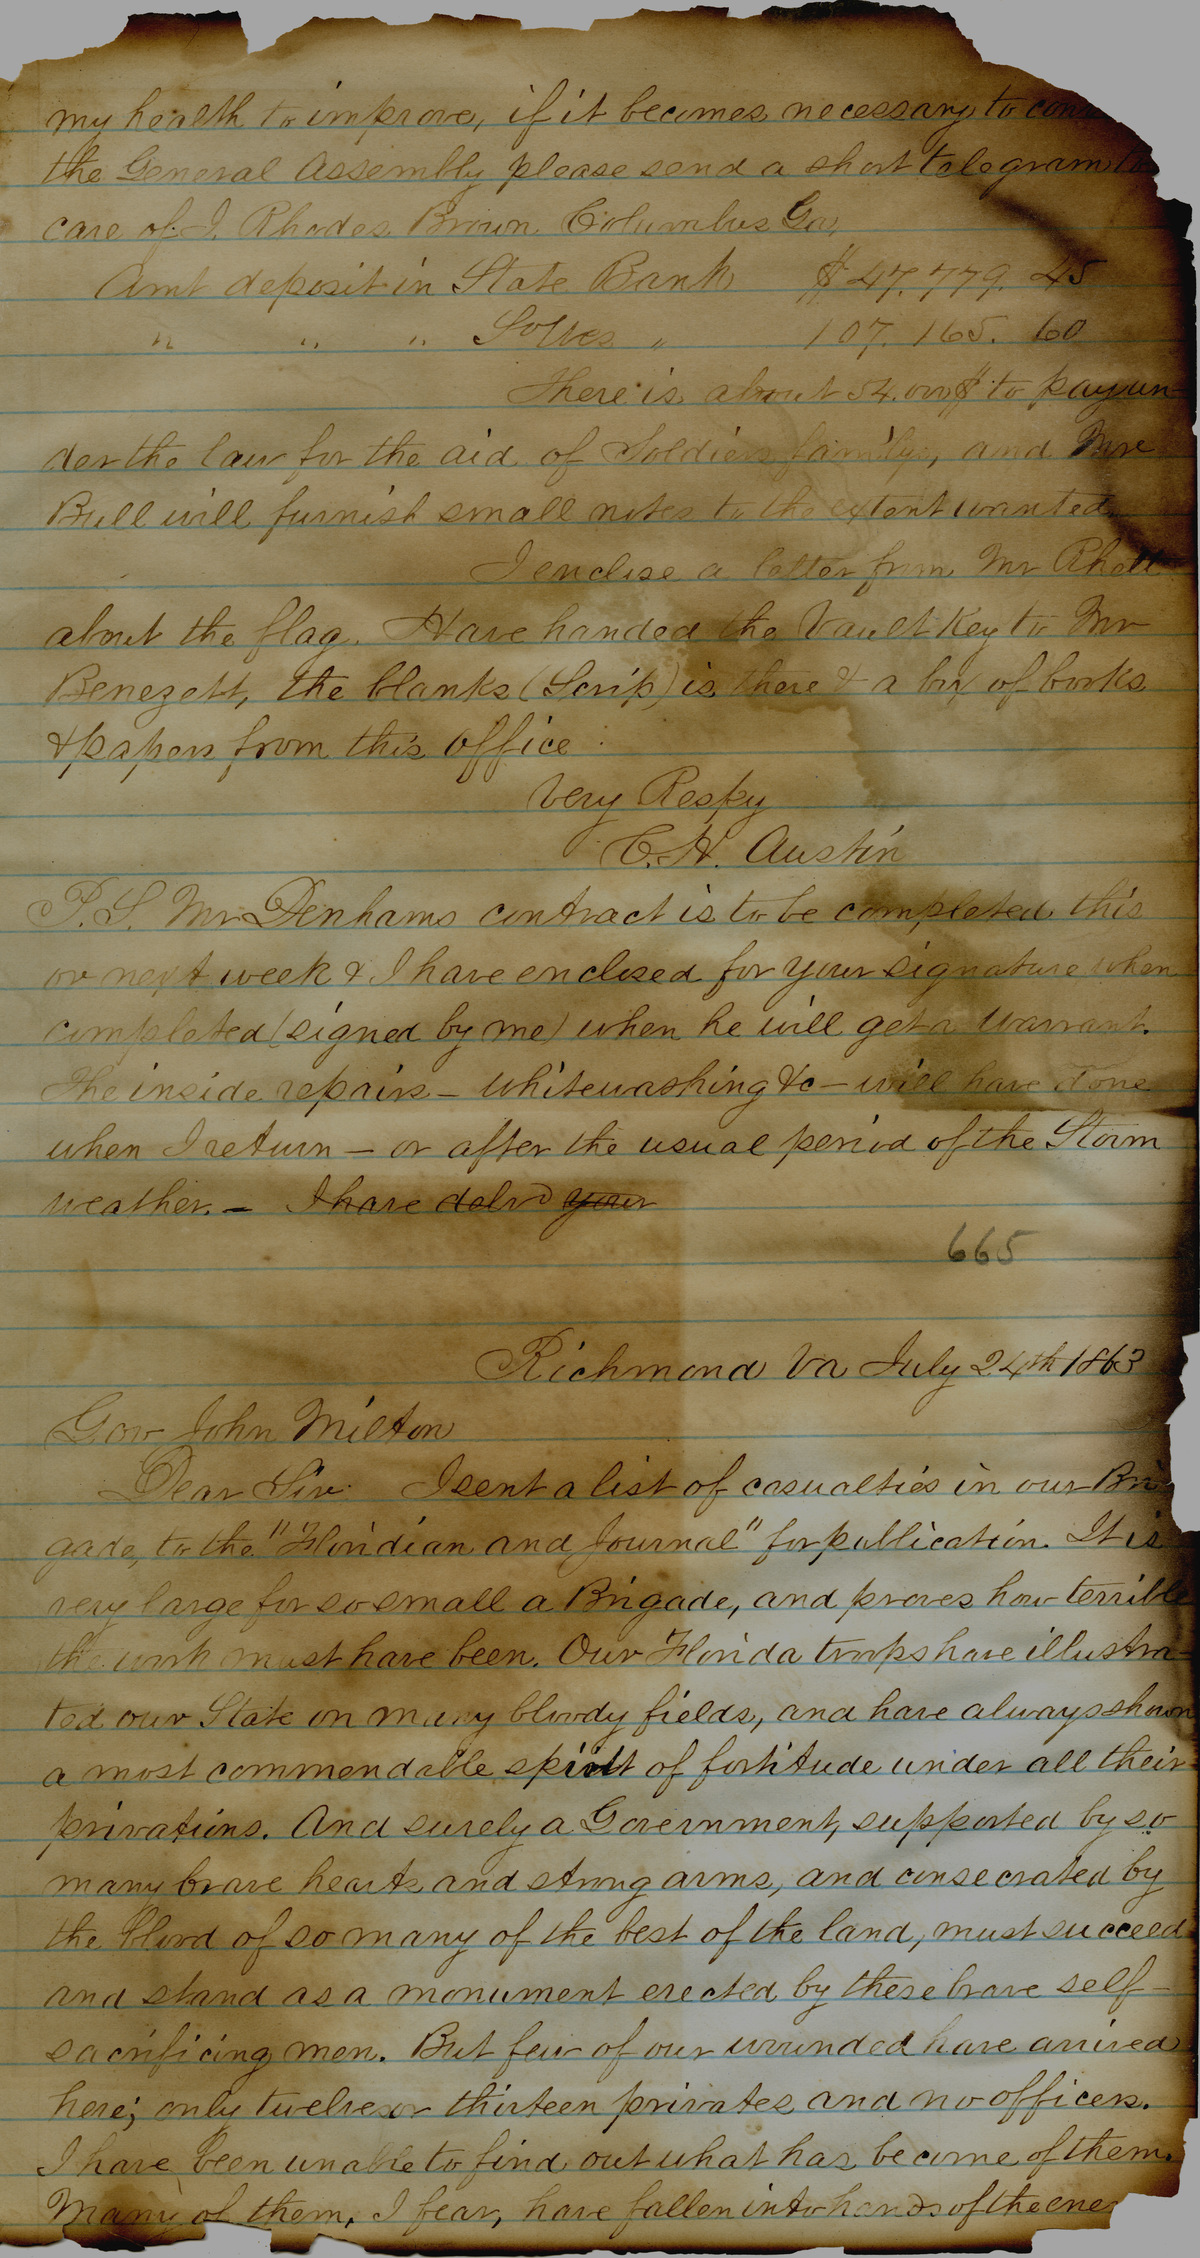 my health to improve, if it becomes necessary to
the General Assembly please send a short telegram to
care of J. Rhodes Brown Columbus Ga,
Amt deposit in State Bank $47.779.45
" " " " 107.165.60
There is about 54.000$ to pay un-
der the law for the aid of Soldiers family, and Mr
Bull will furnish small notes to the extent wanted.
I enclose a letter from Mr Rhett
about the flag. Have handed the Vault Key to Mr
Benezett, the blanks (Scrip) is there & a box of books
& papers from this office.
Very Respy
C. H. Austin
P.S. Mr Denhams contract is to be completed this
or next week & I have enclosed for your signature when
completed (signed by me) when he will get a Warrant.
The inside repairs – whitewashing &c – will have done
when I return – or after the usual period of the Storm
weather. – I have delvd your
665
Richmond Va July 24th 1863
Gov John Milton
Dear Sir. I sent a list of casualties in our Bri
gade, to the "Floridian and Journal" for publication. It is
very large for so small a Brigade, and proves how terrible
the work must have been. Our Florida troops have illustra-
ted our State on many bloody fields, and have always shown
a most commendable spirit of fortitude under all their
privations. And surely a Government, supported by so
many brave hearts and strong arms, and consecrated by
the blood of so many of the best of the land, must succeed
and stand as a monument erected by these brave self-
sacrificing men. But few of our wounded have arrived
here; only twelve or thirteen privates and no officers.
I have been unable to find out what has become of them.
Many of them, I fear, have fallen into hands of the ene